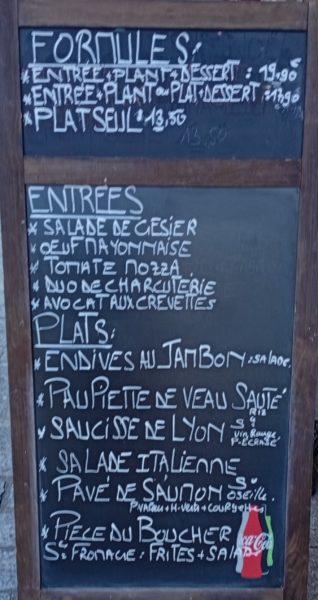 FORMULES:
* ENTRÉE + PLANT + DESSERT : 19,90€
* ENTRÉE + PLANT ou PLAT + DESSERT : 17,90
* PLAT SEUL : 13,50
13,50
ENTRÉES
* SALADE DE GESIER
* OEUF MAYONNAISE
* TOMATE MOZZA
* DUO DE CHARCUTERIE
* AVOCAT AUX CREVETTES
PLATS:
* ENDIVES AU JAMBON : SALADE.
* PAUPIETTE DE VEAU SAUTÉ
RIZ
* SAUCISSE DE LYON Sce Vin Rouge
P. ECRASÉ
* SALADE ITALIENNE
* PAVÉ DE SAUMON Sce OSEILLE.
+ H. Vert + COURGETTES
* PIECE DU BOUCHER
Sce FROMAGE : FRITES + SALADE
Coca-Cola